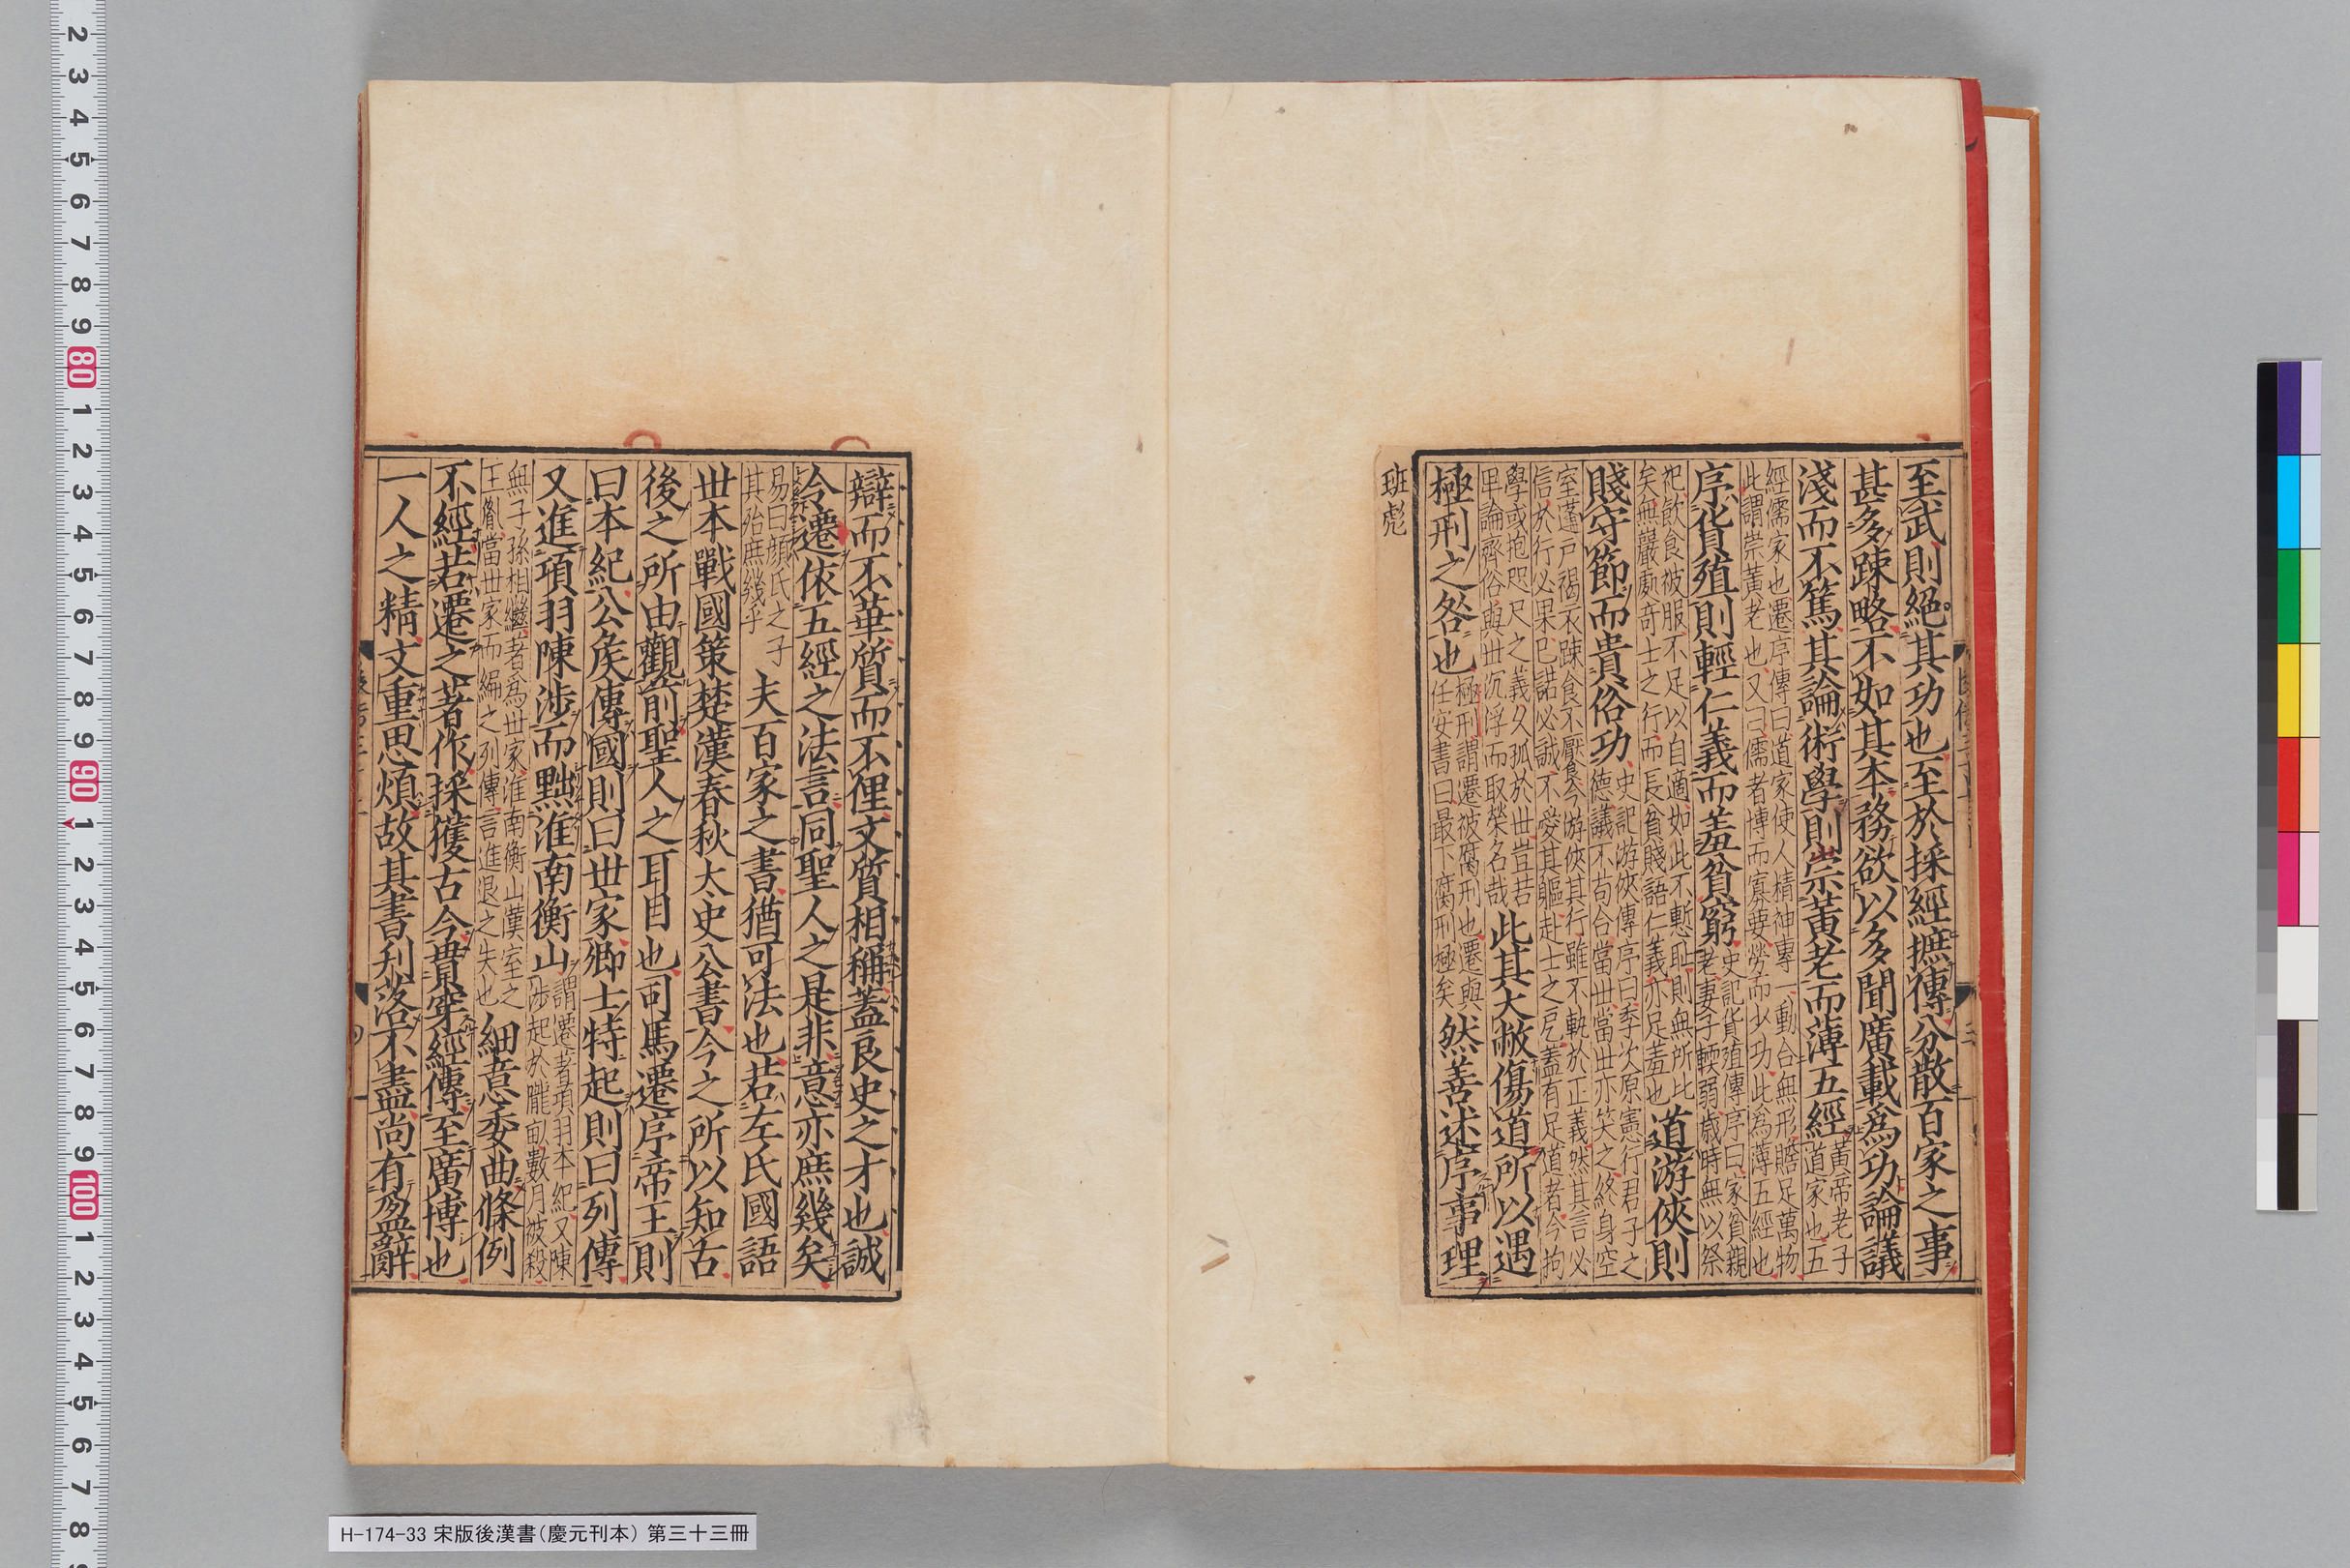 至武則絕其功也至於採經摭傳分散百家之事
甚多疎略不如其本務欲以多聞廣載爲功論議
淺而不篤其論術學則崇黃老而薄五經黃帝老子道家也五
經儒家也遷序傳曰道家使人精神專一動合無形贍足萬物
此謂崇黃老也又曰儒者博而寡要勞而少功此爲薄五經也
序貨殖則輕仁義而羞貧窮史記貨殖傳序曰家貧親
老妻子輭弱歲時無以祭
祀飲食彼服不足以自適如此不慙恥則無所比
矣無巖處奇士之行而長貧賤語仁義亦足羞也
道游俠則
賤守節而貴俗功史記游俠傳序曰季次原憲行君子之
德議不苟合當世當世亦笑之終身空
室蓬戶褐衣疎食不厭今游俠其行雖不軌於正義然其言必
信於行必果已諾必誠不愛其軀走士之戹蓋有足道者今拘
學或抱咫尺之義久孤於世豈若
卑論儕俗與世沉浮而取榮名哉
此其大敝傷道所以遇
極刑之咎也極刑謂遷彼腐刑也遷與
任安書曰最下腐刑極矣
然善述序事理
班彪
辯而不華質而不俚文質相稱蓋良史之才也誠
令遷依五經之法言同聖人之是非意亦庶幾矣
易曰顏氏之子
其殆庶幾乎
夫百家之書猶可法也若左氏國語
世本戰國策楚漢春秋太史公書今之所以知古
後之所由觀前聖人之耳目也司馬遷序帝王則
曰本紀公侯傳國則曰世家卿士特起則曰列傳
又進項羽陳涉而黜淮南衡山謂遷著項羽本紀又陳
涉起於隴畝數月被殺
無子孫相繼著爲世家淮南衡山漢室之
王胤當世家而編之列傳言進退之失也
細意委曲條例
不經若遷之著作採獲古今貫穿經傳至廣博也
一人之精文重思煩故其書刋落不盡尚有盈辭
2
3
4
5
6
7
8
9
80
1
2
3
4
5
6
7
8
9
90
1
2
3
4
5
6
7
8
9
100
1
2
3
4
5
6
7
8
H-174-33 宋版後漢書（慶元刊本） 第三十三冊